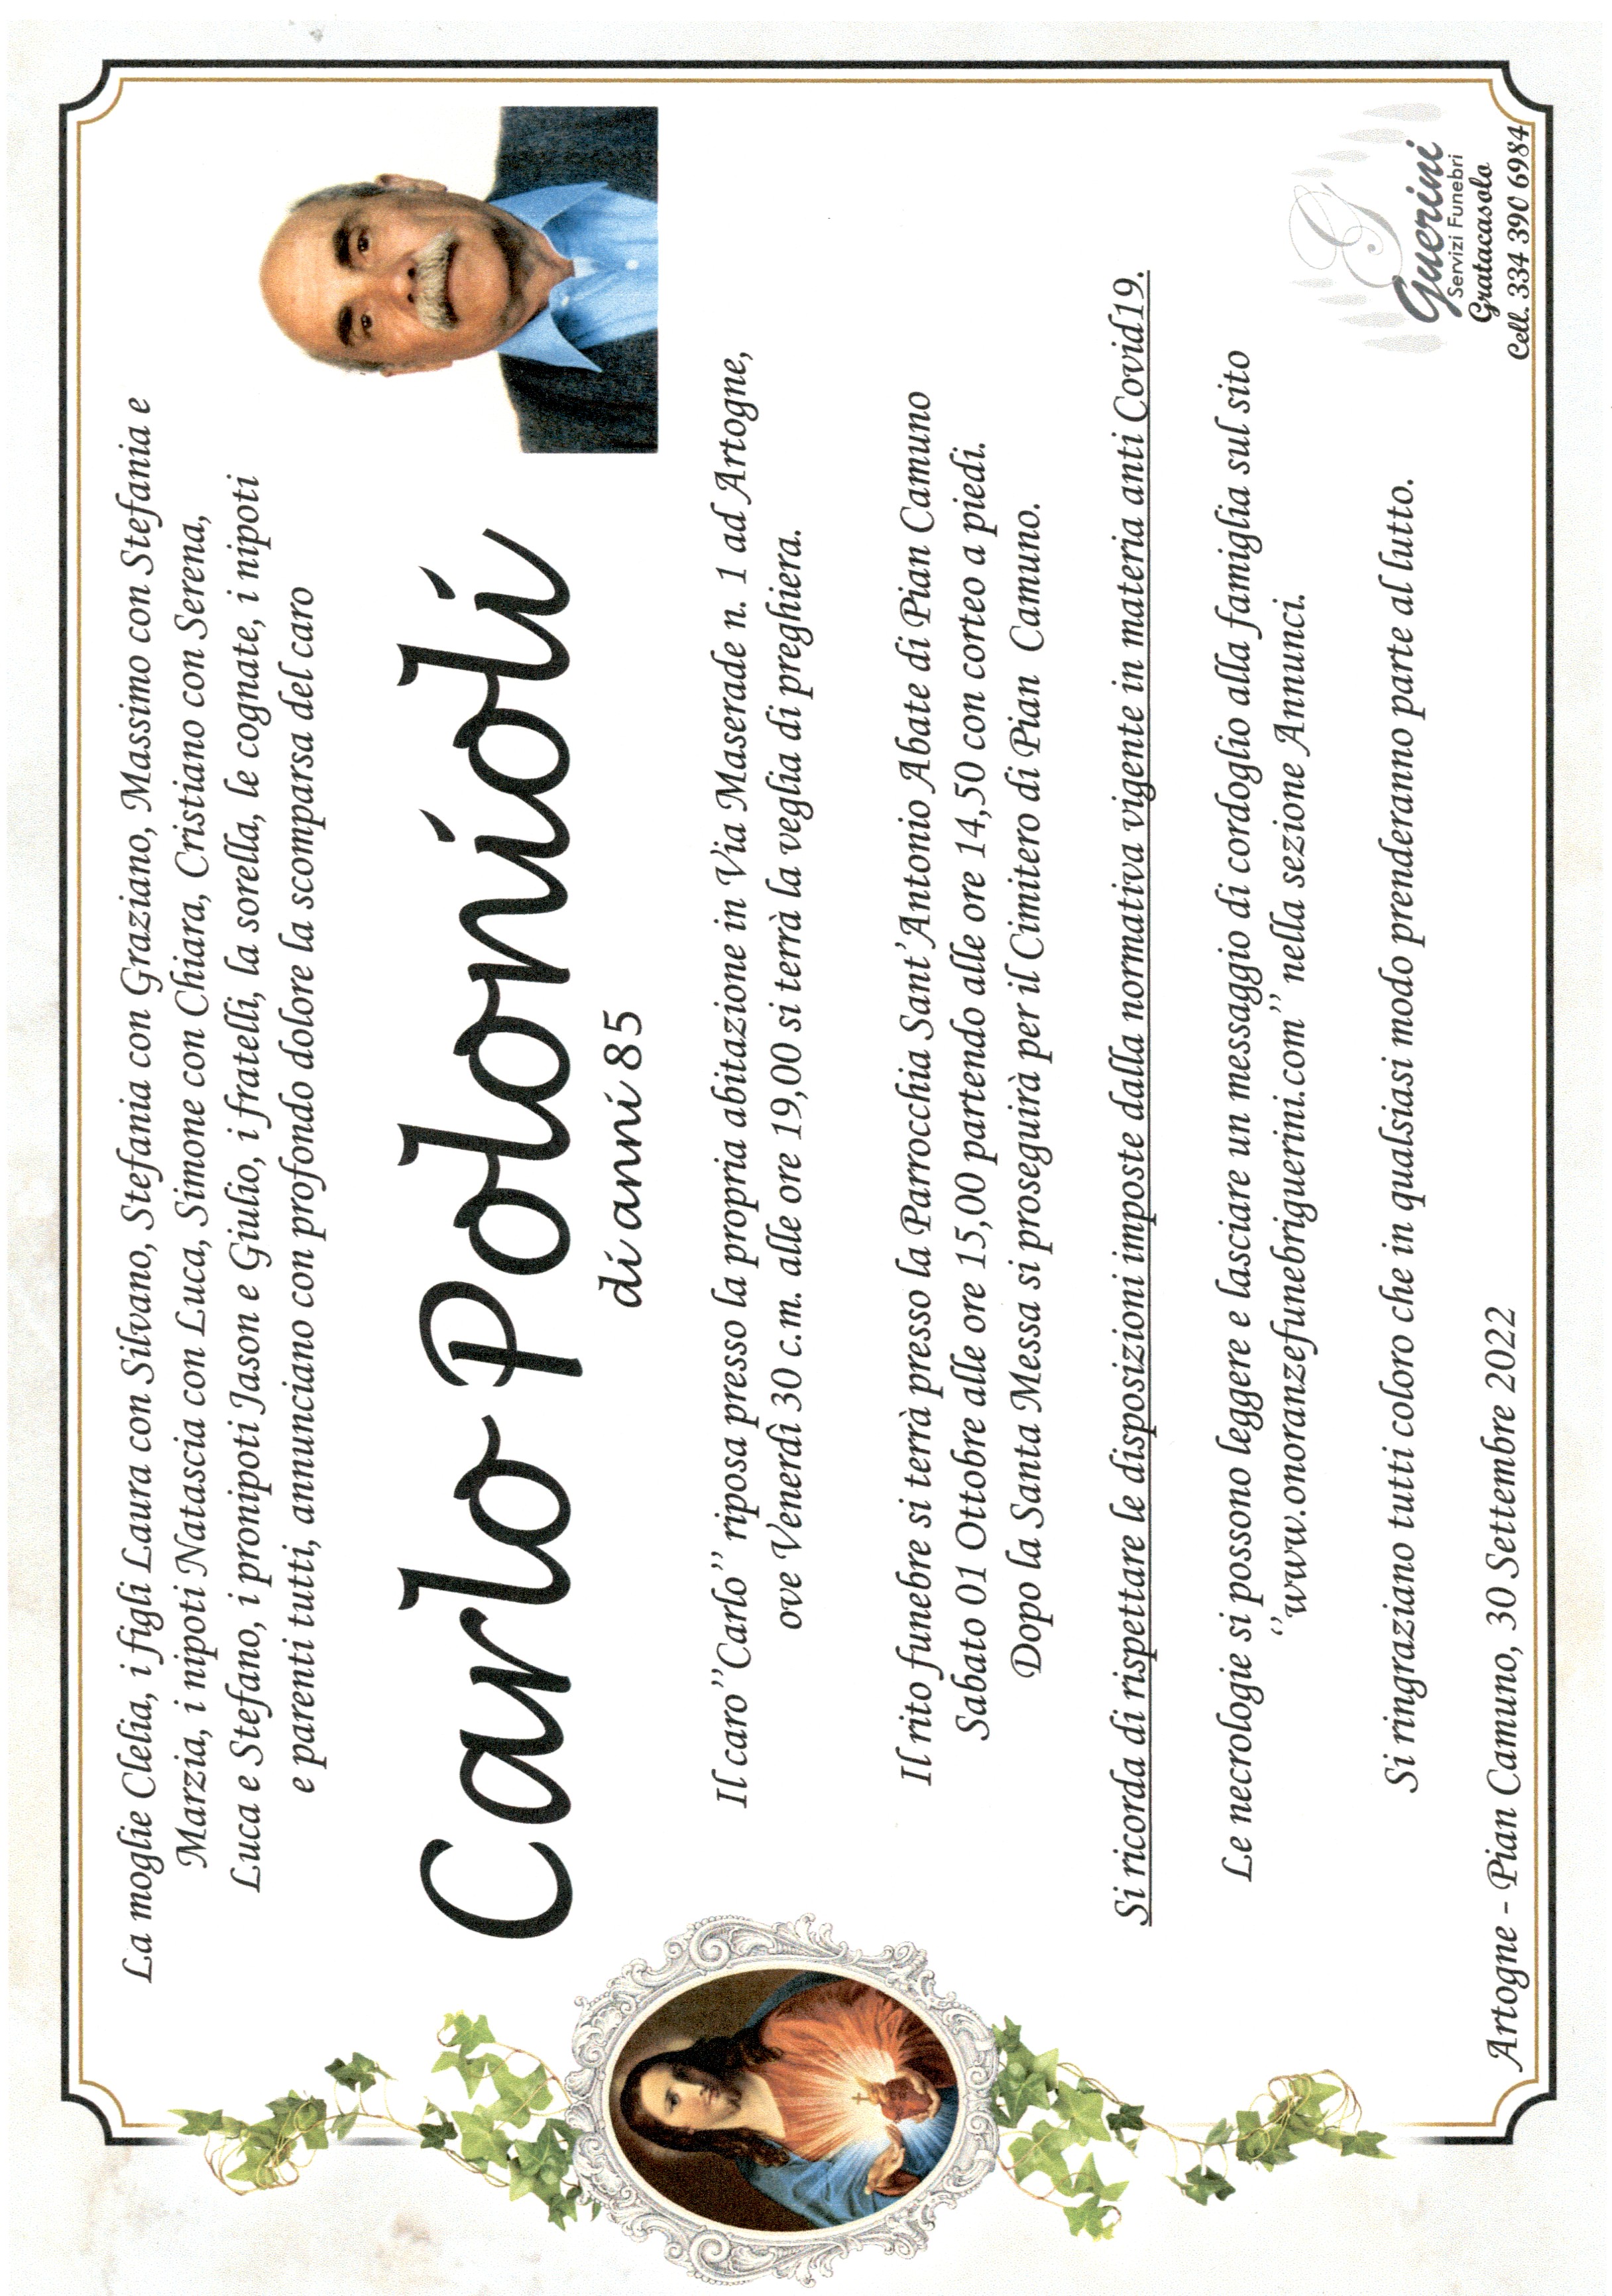 La moglie Clelia, i figli Laura con Silvano, Stefania con Graziano, Massimo con Stefania e
Marzia, i nipoti Natascia con Luca, Simone con Chiara, Cristiano con Serena,
Luca e Stefano, i pronipoti Jason e Giulio, i fratelli, la sorella, le cognate, i nipoti
e parenti tutti, annunciano con profondo dolore la scomparsa del caro
Carlo Polonioli
di anni 85
Il caro’’Carlo’’ riposa presso la propria abitazione in Via Maserade n. 1 ad Artogne,
ove Venerdì 30 c.m. alle ore 19,00 si terrà la veglia di preghiera.
Il rito funebre si terrà presso la Parrocchia Sant’Antonio Abate di Pian Camuno
Sabato 01 Ottobre alle ore 15,00 partendo alle ore 14,50 con corteo a piedi.
Dopo la Santa Messa si proseguirà per il Cimitero di Pian Camuno.
Si ricorda di rispettare le disposizioni imposte dalla normativa vigente in materia anti Covid19.
Le necrologie si possono leggere e lasciare un messaggio di cordoglio alla famiglia sul sito
‘’www.onoranzefunebriguerini.com’’ nella sezione Annunci.
Si ringraziano tutti coloro che in qualsiasi modo prenderanno parte al lutto.
Artogne - Pian Camuno, 30 Settembre 2022
G
Guerini
Servizi Funebri
Gratacasolo
Cell. 334 390 6984